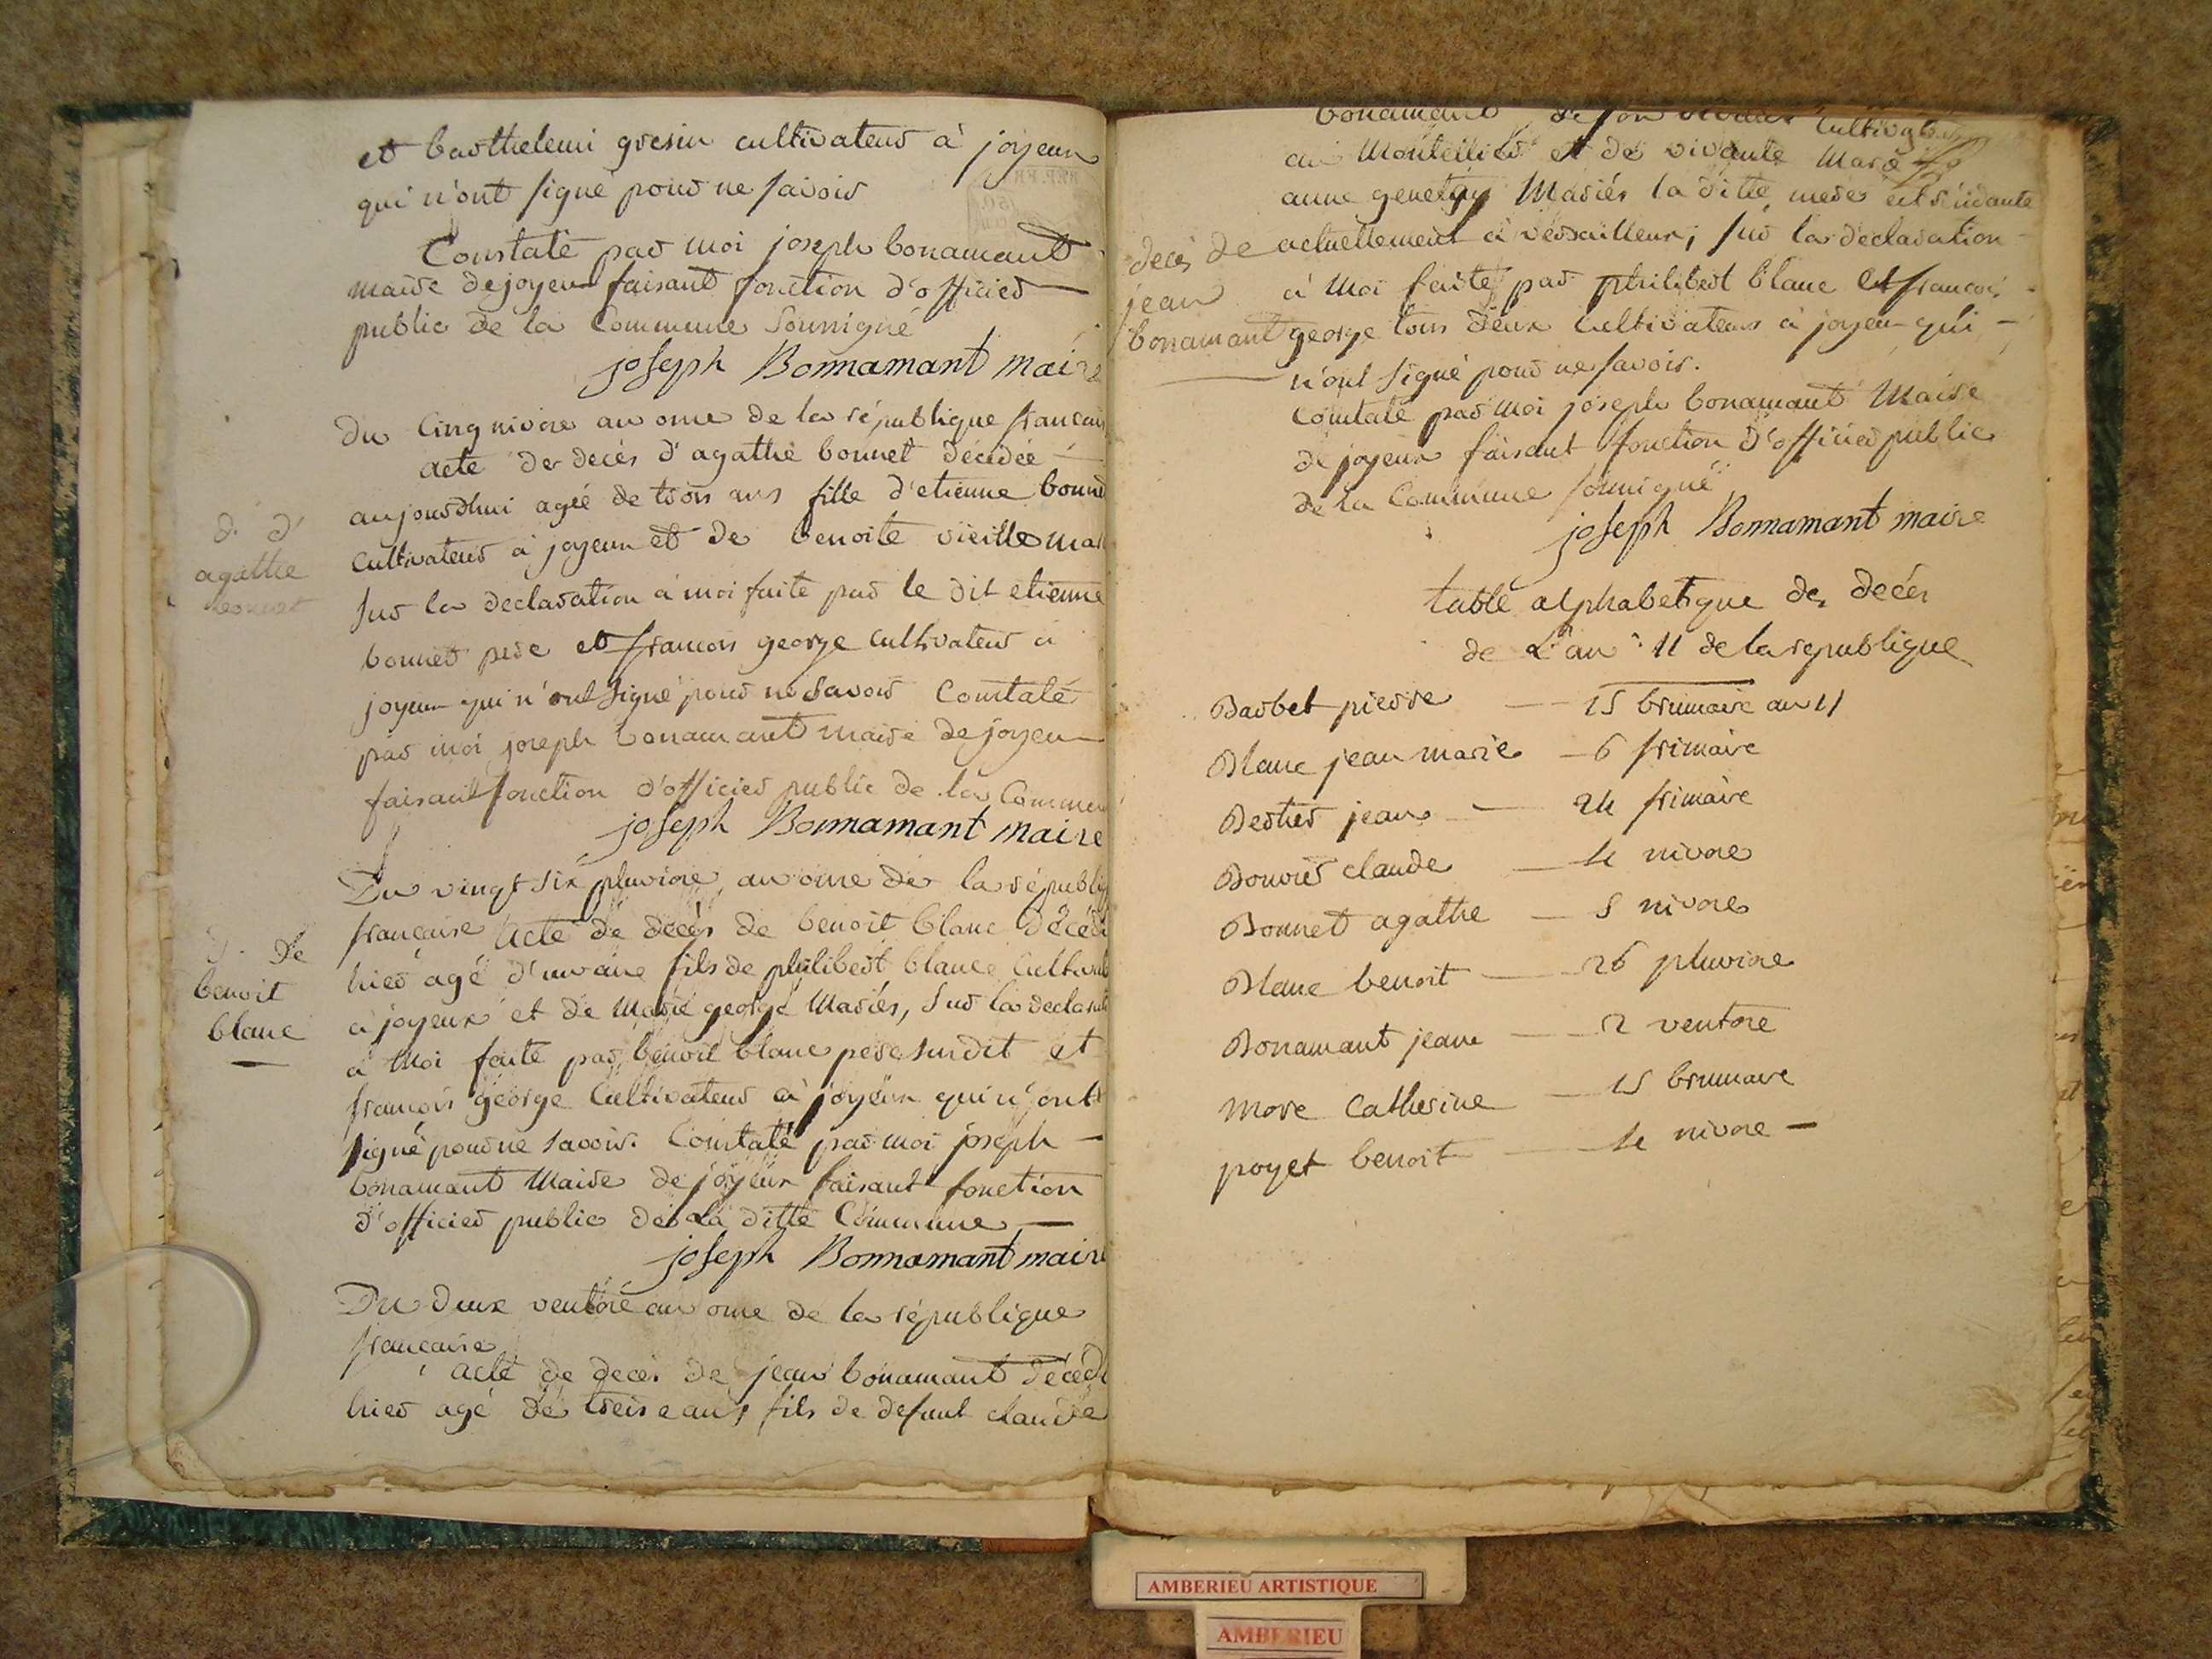 et barthelemi gresin cultivateur à joyeux
qui n'ont signé pour ne savoir
Constaté par moi joseph bonamant
maire de joyeux faisant fonction d'officier
public de la Commune Soussigné
joseph Bonnamant maire
du Cinq nivose an onze de la république francais
acte de decés d'agathe bonnet décédée
aujourdhui ageé de trois ans fille d'etienne bonnet
d. d'
agathe
bonnet
cultivateur a joyeux et de benoite vieille mar
sur la declaration a moi faite par le dit etienne
bonnet pere et francois george cultivateur a
joyeux qui n'ont signé pour ne savoir Constaté
par moi joseph bonamant maire de joyeux
faisant fonction d'officier public de la Commun
joseph Bonnamant maire
Du vingt six pluviose an onze de la républiq
française acte de decés de benoit blanc décédé
d. de
benoit
blanc
hier agé d'un an fils de philibert blanc Cultivat
a joyeux et de Marie george Mariés, sur la declarat
a Moi faite par benoit blanc pere susdit et
francois george Cultivateur a joyeux qui n'ont
signé pour ne savoir. Constaté par moi joseph
bonamant Maire de joyeux faisant fonction
d'officier public de La ditte Commune
joseph Bonnamant maire
Du deux ventose an onze de la république
francaise
acte de deces de jean bonamant décédé
hier agé de treize ans fils de defunt claude
bonamant de son vivant Cultivateur
au Montellier et de vivante Marie
anne genetay Mariés la ditte mere residante
actuellement a versailleux; sur la declaration
decés de
jean
bonamant
a Moi faite par philibert blanc et francois
george tous deux Cultivateurs a joyeux qui
n'ont signé pour ne savoir.
Constaté par moi joseph bonamant Maire
de joyeux faisant fonction d'officier public
de la Commune soussigné
joseph Bonnamant maire
table alphabetique des decés
de L'an 11 de la republique
Barbet pierre — 15 brumaire an 11
Blanc jean marie — 6 frimaire
Bertier jean — 24 frimaire
Bouvier claude — 4 nivose
Bonnet agathe — 5 nivose
Blanc benoit — 26 pluviose
Bonamant jean — 2 ventose
More Catherine — 15 brumaire
poyet benoit — 4 nivose —
AMBERIEU ARTISTIQUE
AMBERIEU